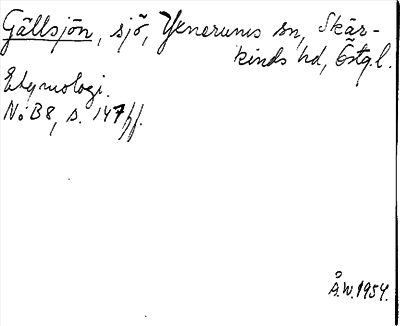 Gällsjön, sjö, Yxnerums sn, Skär-
kinds hd, Östgl.
Etymologi.
NoB 8, s. 147 ff.
Å.W. 1954.